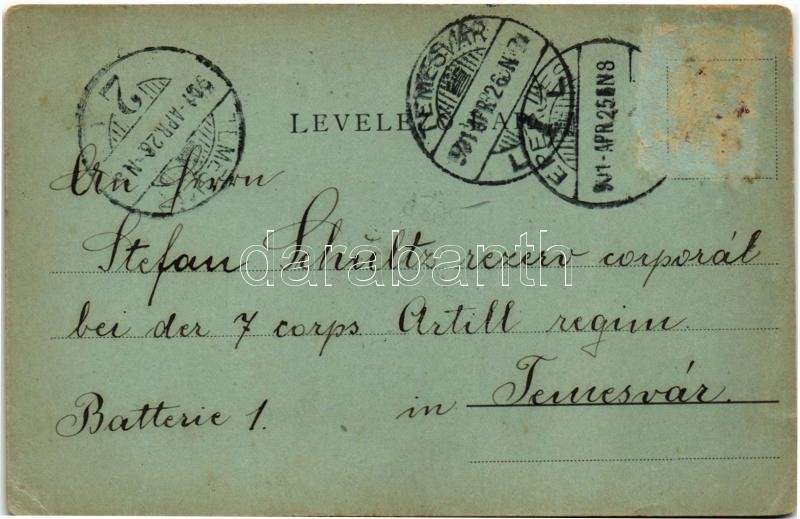 LEVELEZ
TEMESVÁR
901 APR 26 N
EPERJES
901-APR.25 N8
2
901-APR.26-N8
An Herrn
Stefan Schultz rezerv corporál
bei der 7 corps Artill regim.
Batterie 1. in Temesvár.
darabanth